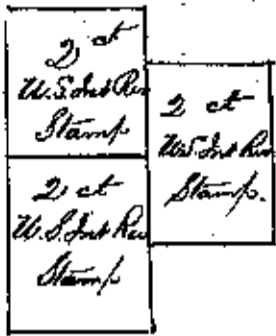 2 ct
U.S. Int Rev
Stamp
2 ct
U.S. Int Rev
Stamp.
2 ct
U.S. Int Rev
Stamp